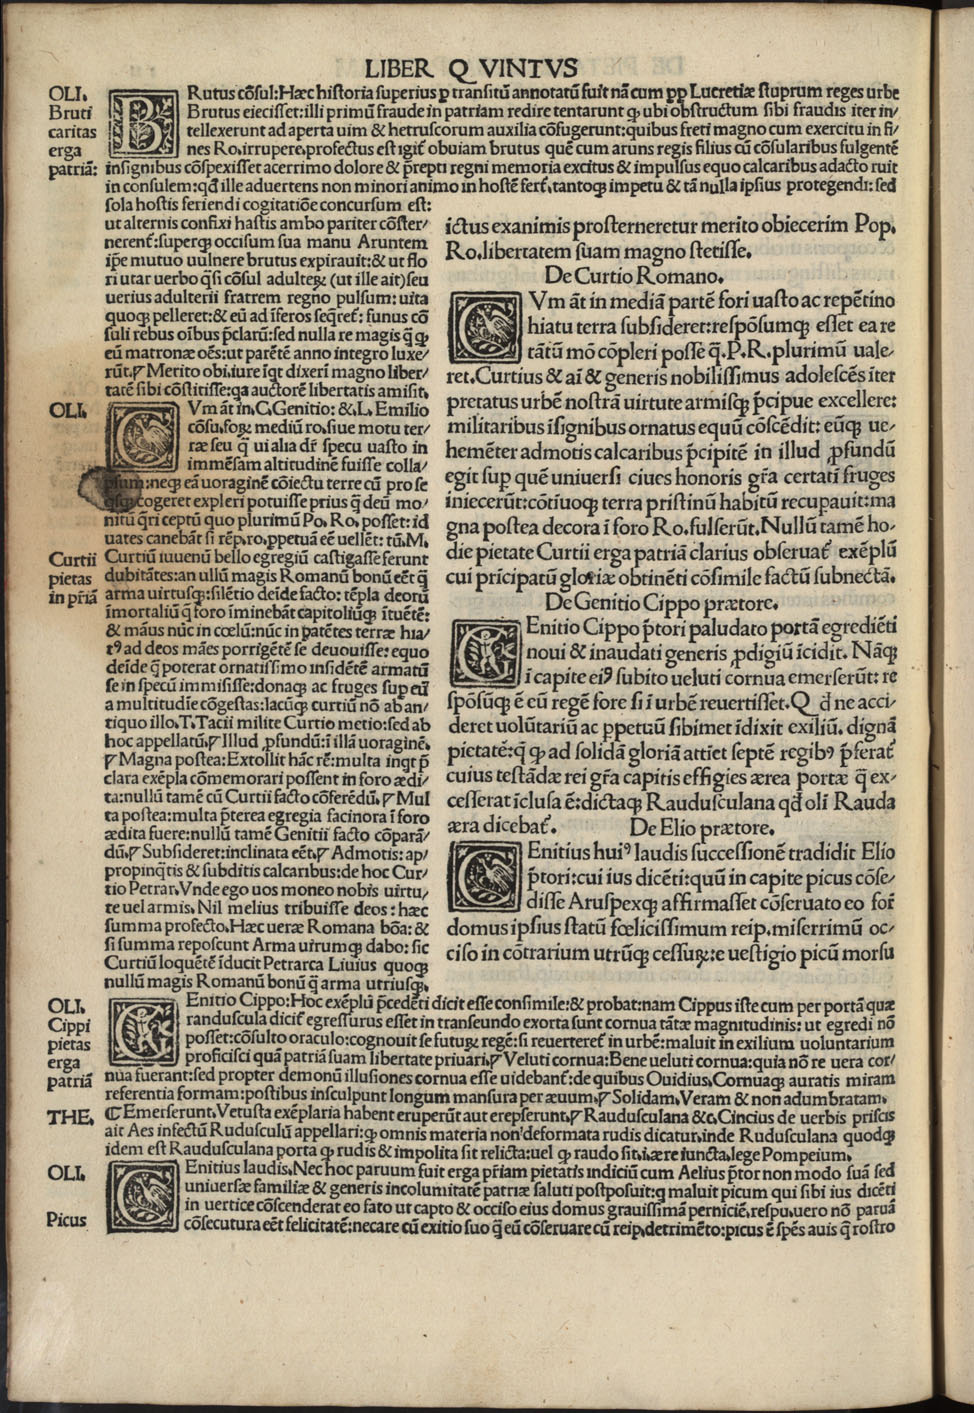 LIBER Q VINTVS
OLI.
Bruti
caritas
erga
patriã:
BRutus cõsul: Hæc historia superius ꝑ transitũ annotatũ fuit nã cum ꝓꝑ Lucretiæ stuprum reges urbe
Brutus eiecisset: illi primũ fraude in patriam redire tentarunt ꝙ ubi obstructum sibi fraudis iter in/
tellexerunt ad aperta uim & hetruscorum auxilia cõfugerunt: quibus freti magno cum exercitu in fi/
nes Ro. irrupere. profectus est igit̃ obuiam brutus quẽ cum aruns regis filius cũ cõsularibus fulgentẽ
insignibus cõspexisset acerrimo dolore & p̃repti regni memoria excitus & impulsus equo calcaribus adacto ruit
in consulem: qđ ille aduertens non minori animo in hostẽ fert̃. tantoqꝫ impetu & tã nulla ipsius protegendi: sed
sola hostis feriendi cogitatiõe concursum est:
ut alternis confixi hastis ambo pariter cõster/
nerent̃: superqꝫ occisum sua manu Aruntem
ip̃e mutuo uulnere brutus expirauit: & ut flo
ri utar uerbo q̃si cõsul adulteꝝ (ut ille ait) seu
uerius adulterii fratrem regno pulsum: uita
quoqꝫ pelleret: & eũ ad ĩferos seq̃ret̃: funus cõ
suli rebus oĩbus p̃clarũ: sed nulla re magis q̃ ꝙ
eũ matronæ oẽs: ut parẽtẽ anno integro luxe/
rũt. ⁋ Merito obi. iure ĩqt dixerĩ magno liber/
tatẽ sibi cõstitisse: qa auctorẽ libertatis amisit.
OLI.
CVm ãt in. C. Genitio: & L. Emilio
cõsu. foꝝ mediũ ro. siue motu ter/
ræ seu q̃ ui alia dr̃ specu uasto in
immẽsam altitudinẽ fuisse colla/
psum: neqꝫ eã uoraginẽ cõiectu terre cũ pro se
qsqꝫ cogeret expleri potuisse prius q̃ deũ mo/
nitũ q̃ri ceptũ quo plurimũ Po. Ro. posset: id
uates canebãt si rẽp. ro. ppetuã eẽ uellẽt: tũ. M.
Curtii
pietas
in pr̃iã
Curtiũ iuuenũ bello egregiũ castigasse ferunt
dubitãtes: an ullũ magis Romanũ bonũ eẽt q̃
arma virtusqꝫ: silẽtio deĩde facto: tẽpla deorũ
ĩmortaliũ q̃ foro ĩminebãt capitoliũqꝫ ĩtuẽtẽ:
& mãus nũc in cœlũ: nũc in p̃atẽtes terræ hia/
tꝰ ad deos mães porrigẽtẽ se deuouisse: equo
deĩde q̃ poterat ornatissimo insidẽtẽ armatũ
se in specũ immisisse: donaqꝫ ac fruges sup eũ
a multitudĩe cõgestas: lacũqꝫ curtiũ nõ ab an/
tiquo illo. T. Tacii milite Curtio metio: sed ab
hoc appellatũ. ⁋ Illud ꝓfundũ: ĩ illã uoraginẽ.
⁋ Magna postea: Extollit hãc rẽ: multa inqt p̃
clara exẽpla cõmemorari possent in foro ædi/
ta: nullũ tamẽ cũ Curtii facto cõferẽdũ. ⁋ Mul
ta postea: multa p̃terea egregia facinora ĩ foro
ædita fuere: nullũ tamẽ Genitii facto cõparã/
dũ. ⁋ Subsideret: inclinata eẽt. ⁋ Admotis: ap/
propinq̃tis & subditis calcaribus: de hoc Cur/
tio Petrar. Vnde ego uos moneo nobis uirtu/
te uel armis. Nil melius tribuisse deos: hæc
summa profecto. Hæc ueræ Romana bõa: &
si summa reposcunt Arma uirumqꝫ dabo: sic
Curtiũ loquẽtẽ ĩducit Petrarca Liuius quoqꝫ
nullũ magis Romanũ bonũ q̃ arma utriusqꝫ.
ictus exanimis prosterneretur merito obiecerim Pop.
Ro. libertatem suam magno stetisse.
De Curtio Romano.
CVm ãt in mediã partẽ fori uasto ac repẽtino
hiatu terra subsideret: respõsumqꝫ esset ea re
tãtũ mõ cõpleri posse q̃. P. R. plurimũ uale/
ret. Curtius & aĩ & generis nobilissimus adolescẽs ĩter
pretatus urbẽ nostrã uirtute armisqꝫ p̃cipue excellere:
militaribus ĩsignibus ornatus equũ cõscẽdit: eũqꝫ ue/
hemẽter admotis calcaribus p̃cipitẽ in illud ꝓfundũ
egit sup quẽ uniuersi ciues honoris gr̃a certatĩ fruges
iniecerũt: cõtĩuoqꝫ terra pristinũ habitũ recupauit: ma
gna postea decora ĩ foro Ro. fulserũt. Nullũ tamẽ ho/
die pietate Curtii erga patriã clarius obseruat̃ exẽplũ
cui prĩcipatũ gloriæ obtinẽti cõsimile factũ subnectã.
De Genitio Cippo prætore.
GEnitio Cippo p̃tori paludato portã egrediẽti
noui & inaudati generis ꝓdigiũ ĩcidit. Nãqꝫ
ĩ capite eiꝰ subito ueluti cornua emerserũt: re
spõsũqꝫ ẽ eũ regẽ fore si ĩ urbẽ reuertisset. Q đ ne acci/
deret uolũtariũ ac ppetuũ sibimet ĩdixit exiliũ. dignã
pietatẽ: q̃ ꝙ ad solidã gloriã attiet septẽ regibꝰ p̃ferat̃
cuius testãdæ rei gr̃a capitis effigies ærea portæ q̃ ex/
cesserat ĩclusa ẽ: dictaqꝫ Raudusculana qđ olĩ Rauda
æra dicebat̃. De Elio prætore.
GEnitius huiꝰ laudis successionẽ tradidit Elio
p̃tori: cui ius dicẽti: quũ in capite picus cõse/
disse Aruspexqꝫ affirmasset cõseruato eo for̃
domus ipsius statũ fœlicissimum reip. miserrimũ oc/
ciso in cõtrarium utrũqꝫ cessuꝝ: e uestigio picũ morsu
OLI.
Cippi
pietas
erga
patriã
GEnitio Cippo: Hoc exẽplũ p̃cedẽti dicit esse consimile: & probat: nam Cippus iste cum per portã quæ
randuscula dicit̃ egressurus esset in transeundo exorta sunt cornua tãtæ magnitudinis: ut egredi nõ
posset: cõsulto oraculo: cognouit se futuꝝ regẽ: si reuerteret̃ in urbẽ: maluit in exilium uoluntarium
proficisci quã patriã suam libertate priuari. ⁋ Veluti cornua: Bene ueluti cornua: quia nõ re uera cor/
nua fuerant: sed propter demonũ illusiones cornua esse uidebant̃: de quibus Ouidius. Cornuaqꝫ auratis miram
referentia formam: postibus insculpunt longum mansura per æuum. ⁋ Solidam. Veram & non adumbratam.
THE.
⁋ Emerserunt. Vetusta exẽplaria habent eruperũt aut erepserunt. ⁋ Raudusculana &c. Cincius de uerbis priscis
ait Aes infectũ Rudusculũ appellari: ꝙ omnis materia non deformata rudis dicatur. inde Rudusculana quodqꝫ
idem est Raudusculana porta ꝙ rudis & impolita sit relicta: uel ꝙ raudo sit. i. ære iuncta. lege Pompeium.
OLI.
GEnitius laudis. Nec hoc paruum fuit erga pr̃iam pietatis indiciũ cum Aelius p̃tor non modo suã sed
uniuersæ familiæ & generis incolumitatẽ patriæ saluti postposuit: q maluit picum qui sibi ius dicẽti
in uertice cõscenderat eo fato ut capto & occiso eius domus grauissimã perniciẽ. respu. uero nõ paruã
Picus
cõsecutura eẽt felicitatẽ: necare cũ exitio suo q̃ eũ cõseruare cũ reip. detrimẽto: picus ẽ spẽs auis q̃ rostro